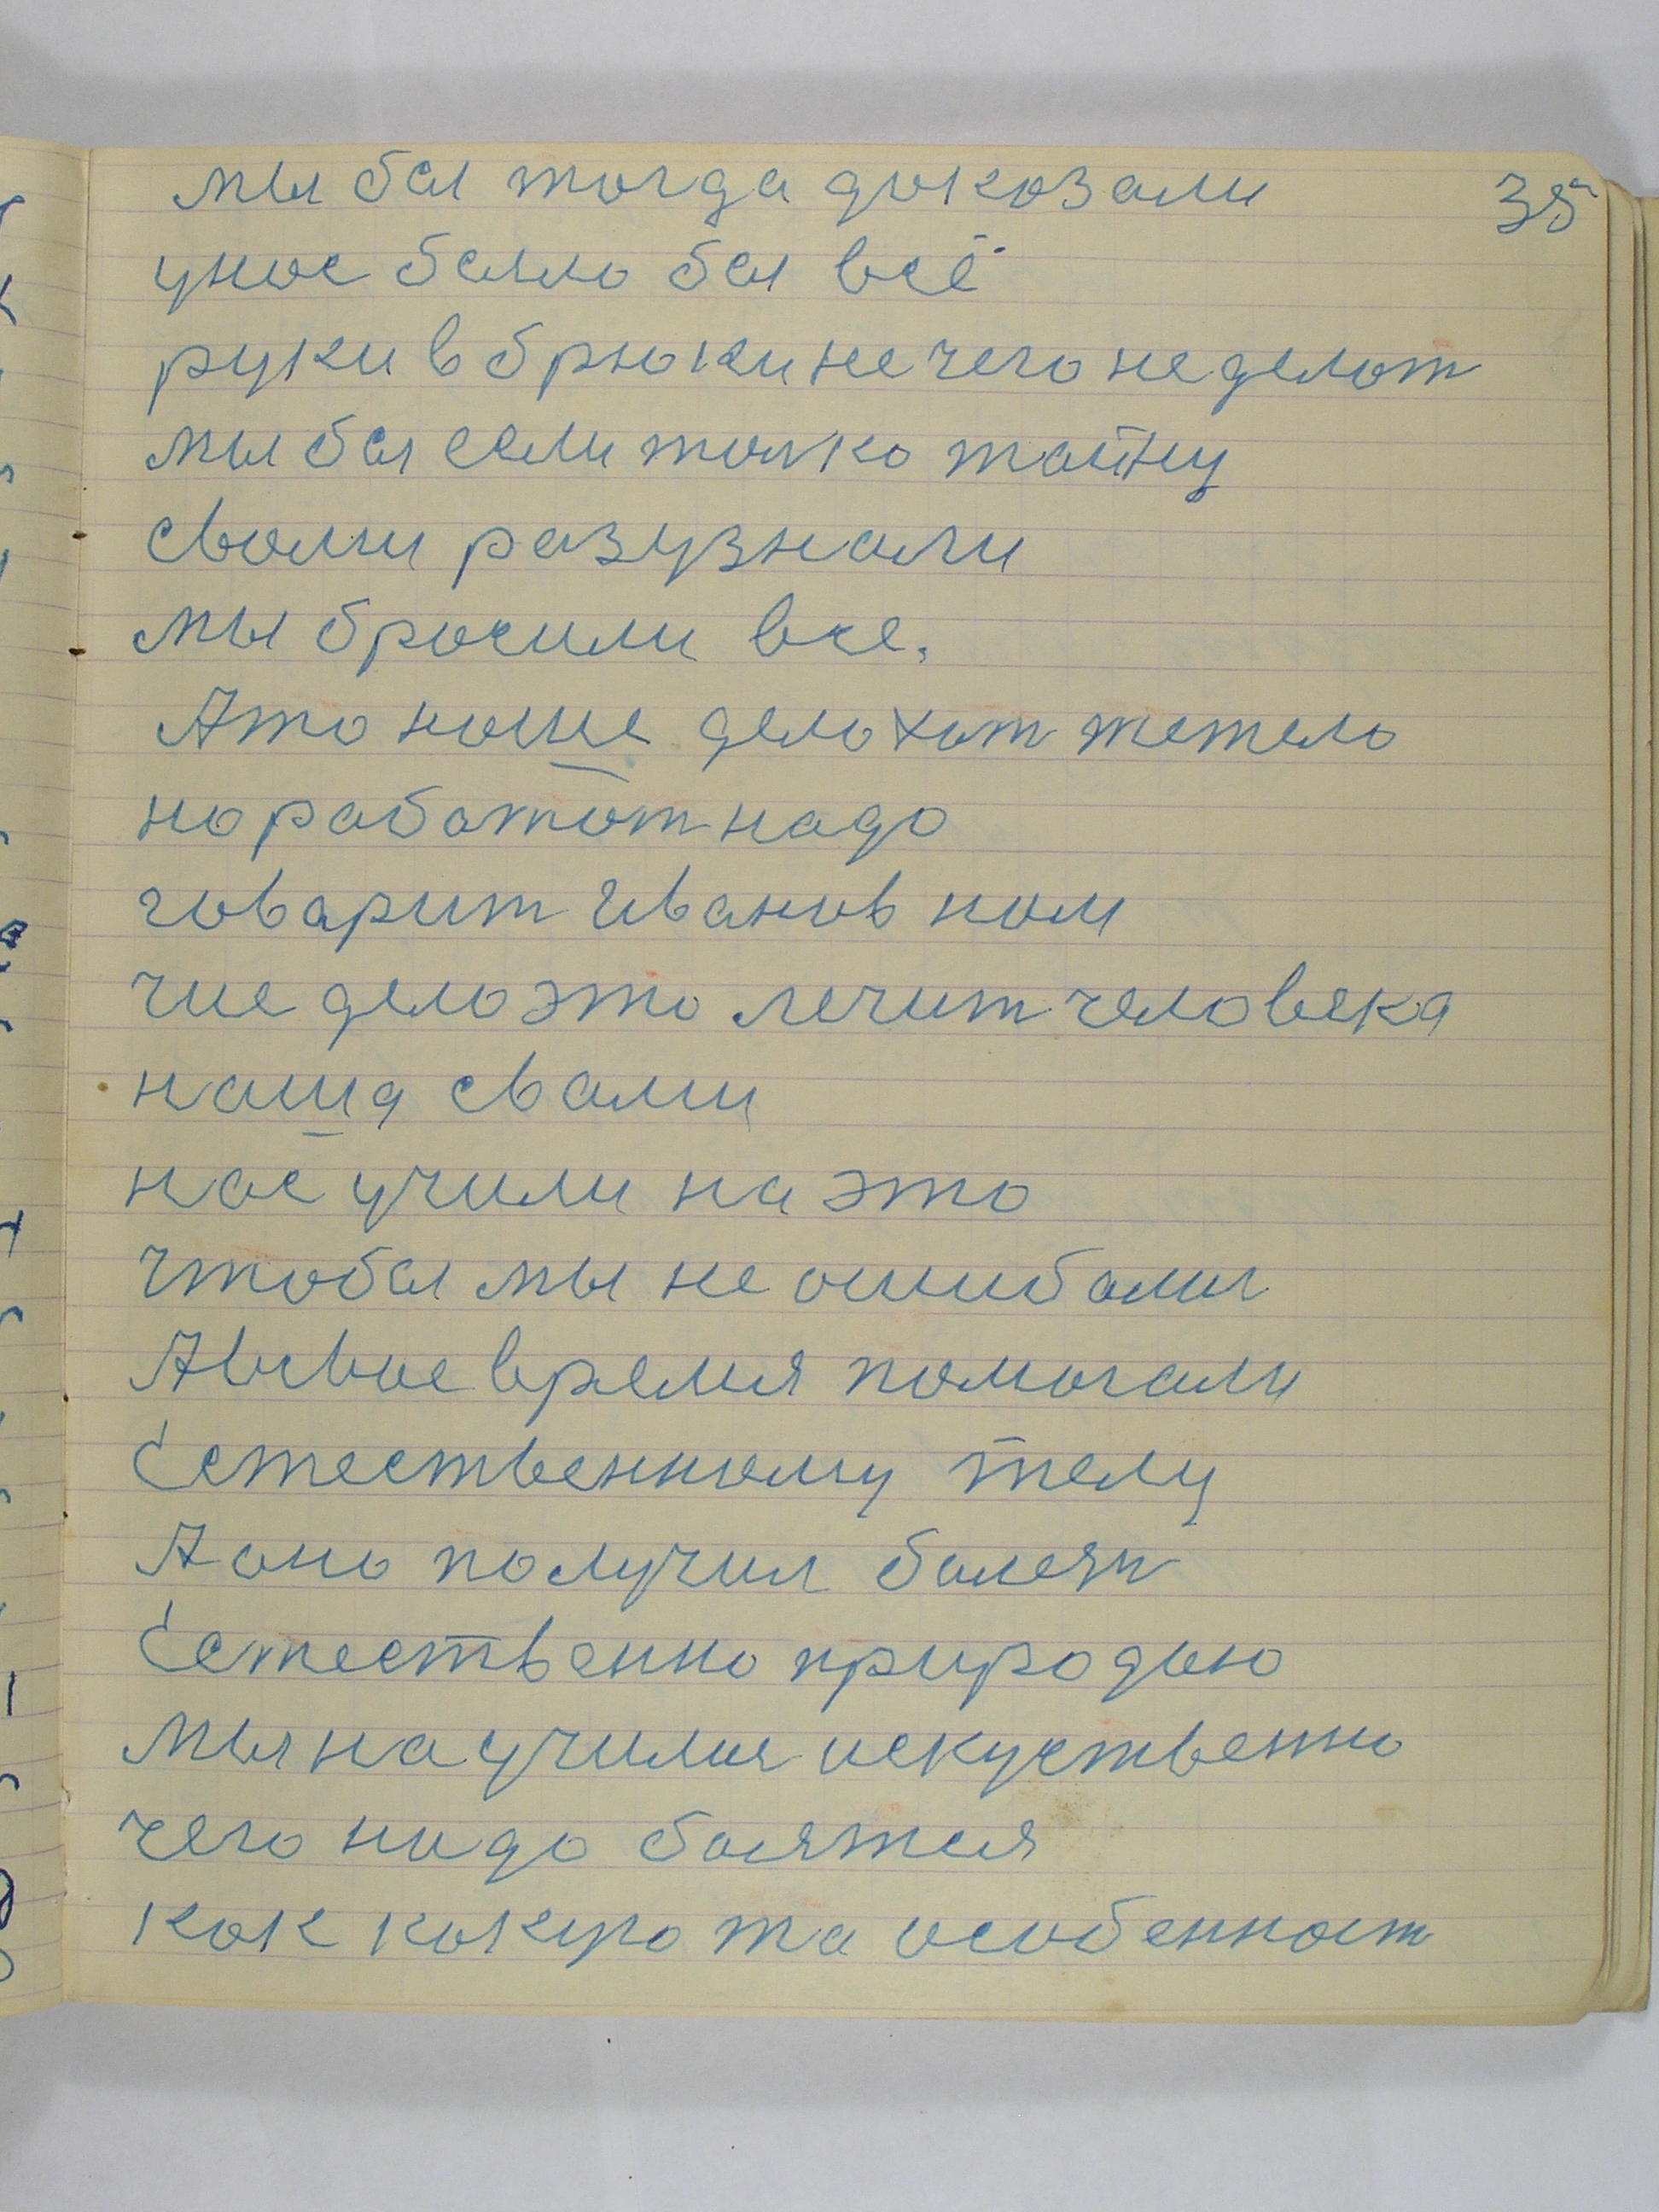 мы бы тогда доказали 35
унас было бы всё
руки в брюки не чего не делат
мы бы если толко тайну
свами разузнали
мы бросили все.
Ато наше дело хот тежело
но работат надо
говарит Иванов нам
чие дело это лечит человека
наша свами
нас учили на это
чтобы мы не ошибалис
А в свое время помогали
Естественному телу
А оно получил болезн
Естественно природою
мы на училис искуственно
чего надо боятся
как какуюта особенност